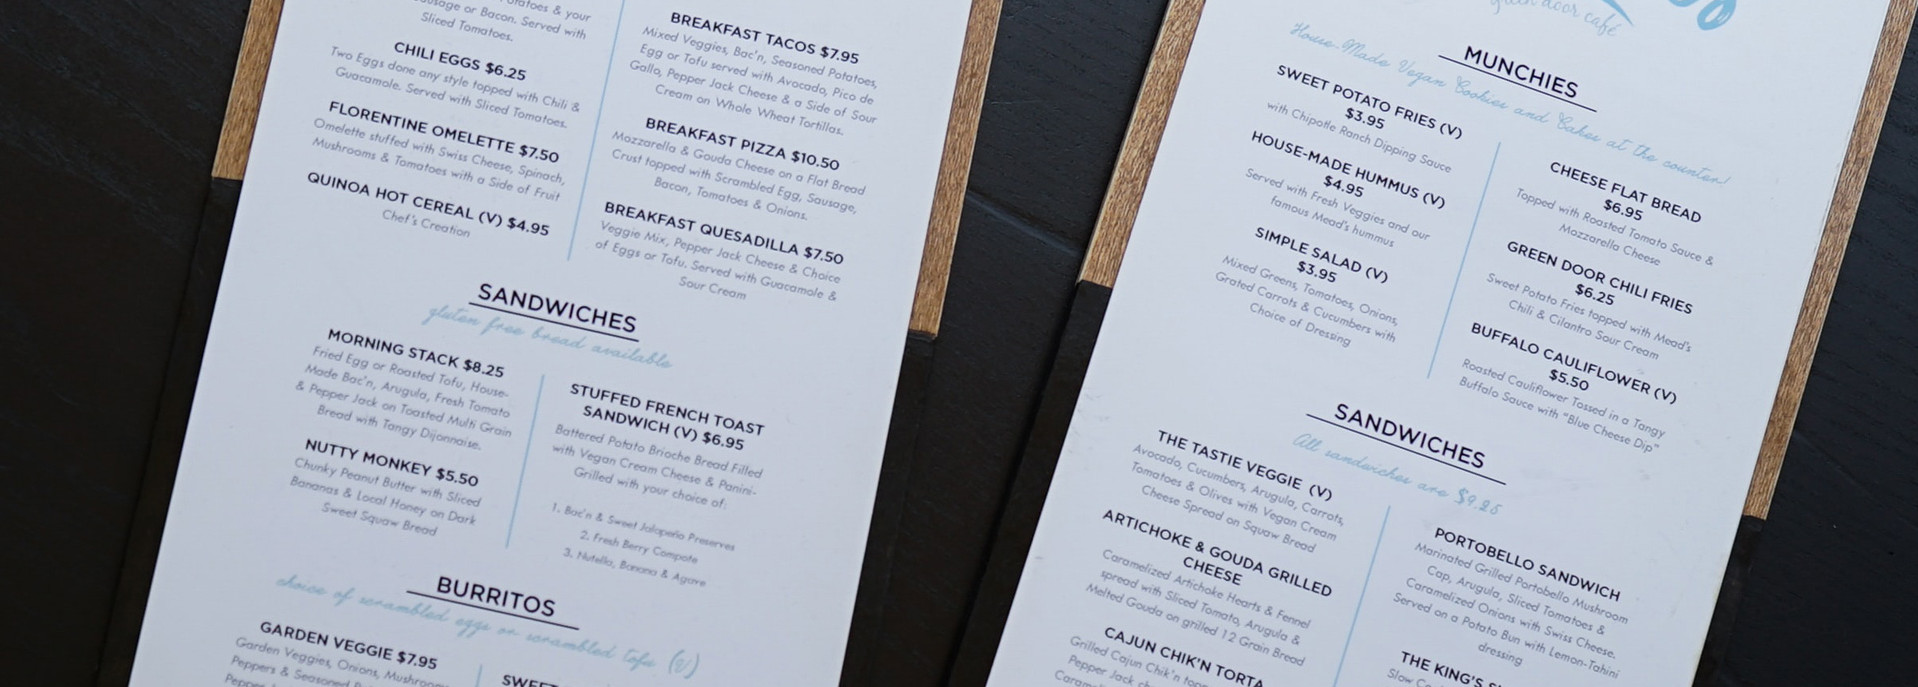 Potatoes & your
Sausage or Bacon. Served with
Sliced Tomatoes.
CHILI EGGS $6.25
Two Eggs done any style topped with Chili &
Guacamole. Served with Sliced Tomatoes.
FLORENTINE OMELETTE $7.50
Omelette stuffed with Swiss Cheese, Spinach,
Mushrooms & Tomatoes with a Side of Fruit
QUINOA HOT CEREAL (V) $4.95
Chef's Creation
BREAKFAST TACOS $7.95
Mixed Veggies, Bac'n, Seasoned Potatoes,
Egg or Tofu served with Avocado, Pico de
Gallo, Pepper Jack Cheese & a Side of Sour
Cream on Whole Wheat Tortillas.
BREAKFAST PIZZA $10.50
Mozzarella & Gouda Cheese on a Flat Bread
Crust topped with Scrambled Egg, Sausage,
Bacon, Tomatoes & Onions.
BREAKFAST QUESADILLA $7.50
Veggie Mix, Pepper Jack Cheese & Choice
of Eggs or Tofu. Served with Guacamole &
Sour Cream
SANDWICHES
gluten free bread available
MORNING STACK $8.25
Fried Egg or Roasted Tofu, House-
Made Bac'n, Arugula, Fresh Tomato
& Pepper Jack on Toasted Multi Grain
Bread with Tangy Dijonnaise.
NUTTY MONKEY $5.50
Chunky Peanut Butter with Sliced
Bananas & Local Honey on Dark
Sweet Squaw Bread
STUFFED FRENCH TOAST
SANDWICH (V) $6.95
Battered Potato Brioche Bread Filled
with Vegan Cream Cheese & Panini-
Grilled with your choice of:
1. Bac'n & Sweet Jalapeño Preserves
2. Fresh Berry Compote
3. Nutella, Banana & Agave
BURRITOS
choice of scrambled eggs or scrambled tofu (V)
GARDEN VEGGIE $7.95
Garden Veggies, Onions, Mushrooms
Peppers & Seasoned
Pepper
SWEET
green door café
MUNCHIES
House-Made Vegan Cookies and Cakes at the counter!
SWEET POTATO FRIES (V)
$3.95
with Chipotle Ranch Dipping Sauce
HOUSE-MADE HUMMUS (V)
$4.95
Served with Fresh Veggies and our
famous Mead's hummus
SIMPLE SALAD (V)
$3.95
Mixed Greens, Tomatoes, Onions,
Grated Carrots & Cucumbers with
Choice of Dressing
CHEESE FLAT BREAD
$6.95
Topped with Roasted Tomato Sauce &
Mozzarella Cheese
GREEN DOOR CHILI FRIES
$6.25
Sweet Potato Fries topped with Mead's
Chili & Cilantro Sour Cream
BUFFALO CAULIFLOWER (V)
$5.50
Roasted Cauliflower Tossed in a Tangy
Buffalo Sauce with "Blue Cheese Dip"
SANDWICHES
All sandwiches are $9.25
THE TASTIE VEGGIE (V)
Avocado, Cucumbers, Arugula, Carrots,
Tomatoes & Olives with Vegan Cream
Cheese Spread on Squaw Bread
ARTICHOKE & GOUDA GRILLED
CHEESE
Caramelized Artichoke Hearts & Fennel
spread with Sliced Tomato, Arugula &
Melted Gouda on grilled 12 Grain Bread
CAJUN CHIK'N TORTA
Grilled Cajun Chik'n
Pepper Jack
PORTOBELLO SANDWICH
Marinated Grilled Portobello Mushroom
Cap, Arugula, Sliced Tomatoes &
Caramelized Onions with Swiss Cheese.
Served on a Potato Bun with Lemon-Tahini
dressing
THE KING'S
Slow